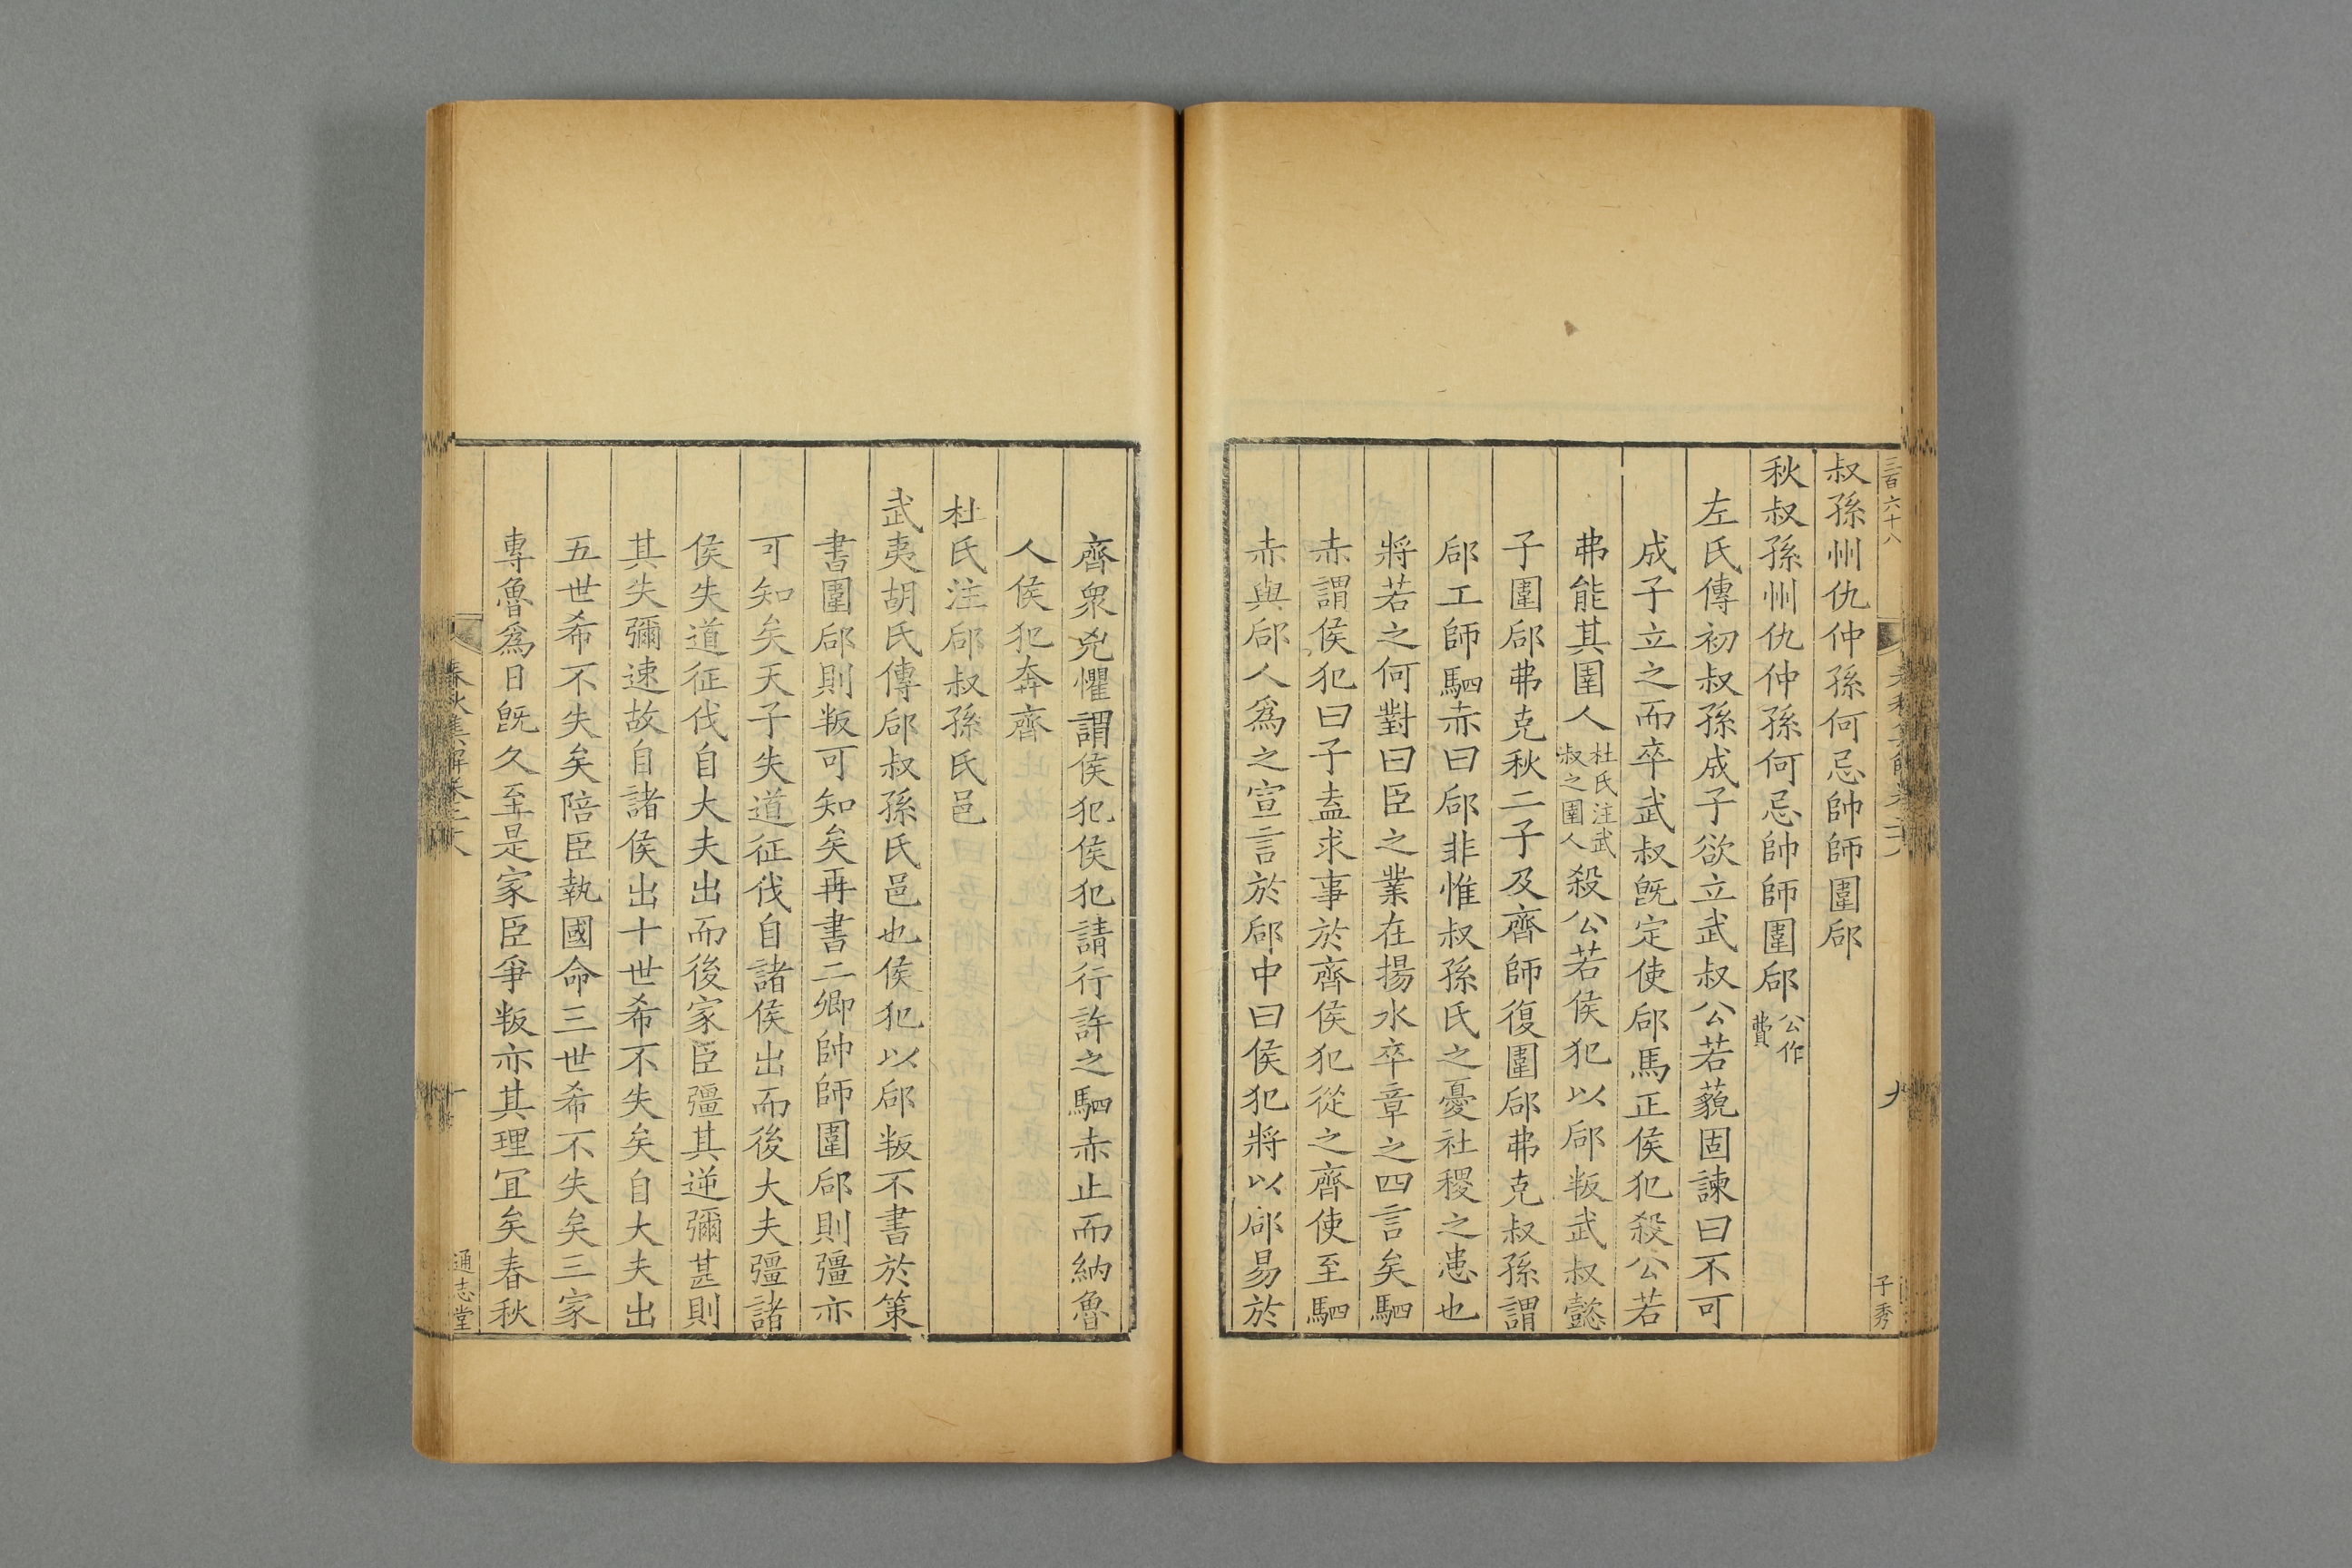 三百六十八
子秀
叔孫州仇仲孫何忌帥師圍郈
秋叔孫州仇仲孫何忌帥師圍郈公作費
左氏傳初叔孫成子欲立武叔公若藐固諫曰不可
成子立之而卒武叔旣定使郈馬正侯犯殺公若
弗能其圉人杜氏注武叔之圉人殺公若侯犯以郈叛武叔懿
子圍郈弗克秋二子及齊師復圍郈弗克叔孫謂
郈工師駟赤曰郈非惟叔孫氏之憂社稷之患也
將若之何對曰臣之業在揚水卒章之四言矣駟
赤謂侯犯曰子盍求事於齊侯犯從之齊使至駟
赤與郈人爲之宣言於郈中曰侯犯將以郈易於
齊衆兇懼謂侯犯侯犯請行許之駟赤止而納魯
人侯犯奔齊
杜氏注郈叔孫氏邑
武夷胡氏傳郈叔孫氏邑也侯犯以郈叛不書於策
書圍郈則叛可知矣再書二卿帥師圍郈則彊亦
可知矣天子失道征伐自諸侯出而後大夫彊諸
侯失道征伐自大夫出而後家臣彊其逆彌甚則
其失彌速故自諸侯出十世希不失矣自大夫出
五世希不失矣陪臣執國命三世希不失矣三家
專魯爲日旣久至是家臣爭叛亦其理宜矣春秋
春秋集解卷二十八
十
通志堂